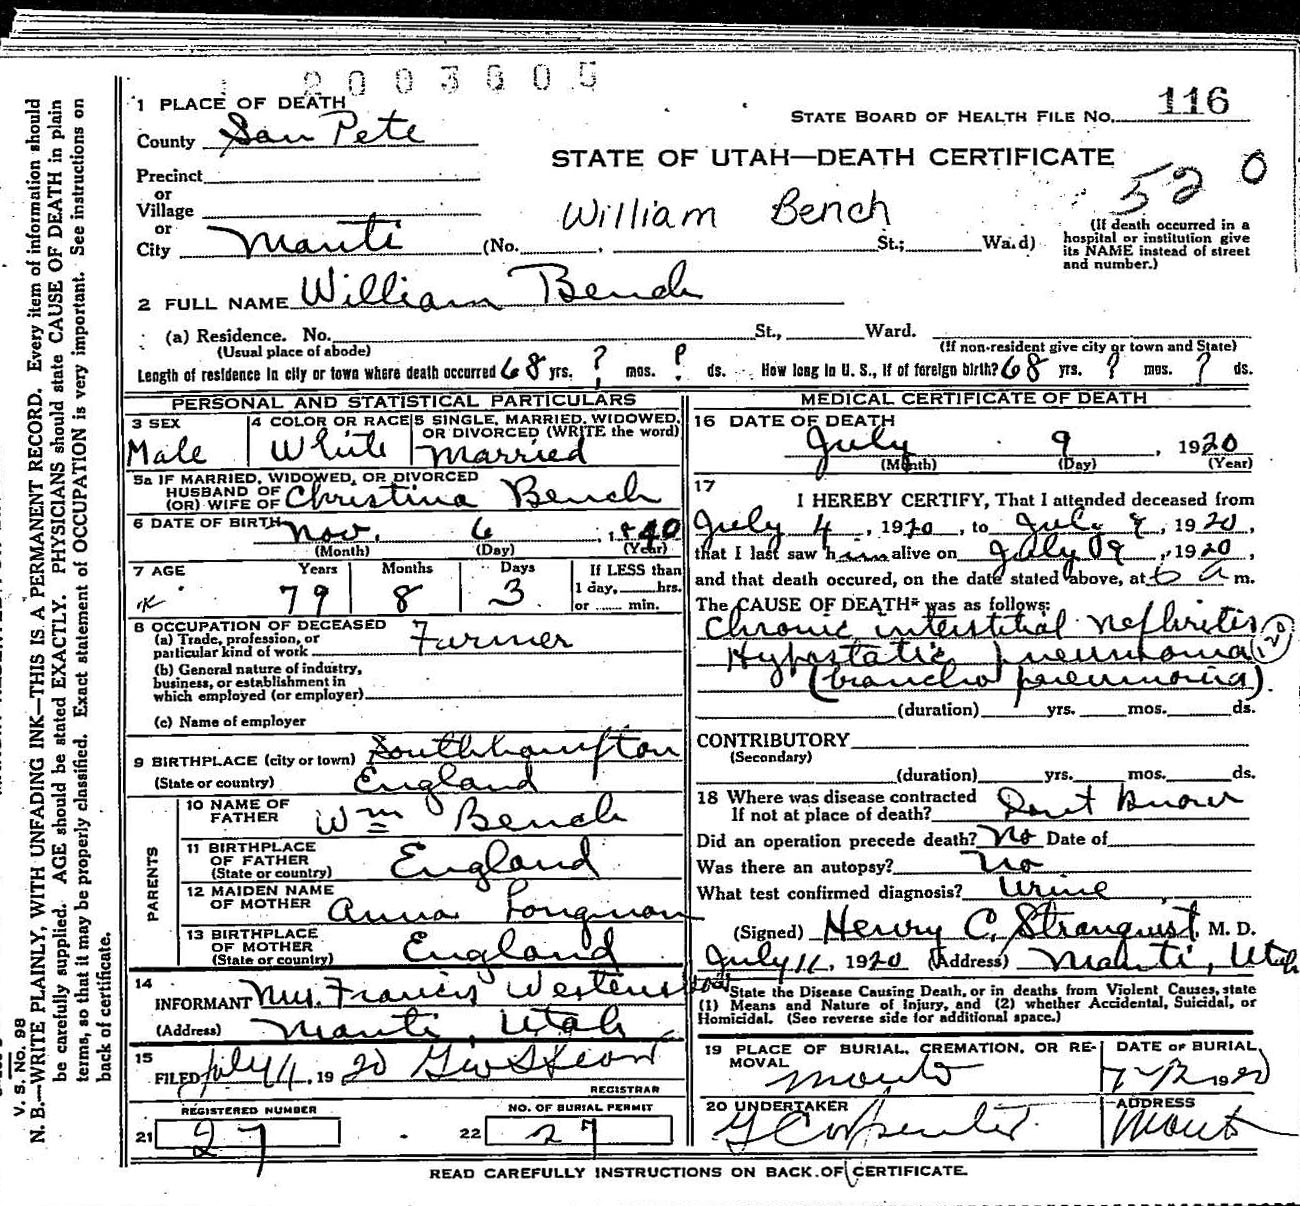 2003605
1 PLACE OF DEATH
STATE BOARD OF HEALTH FILE NO. 116
County San Pete
STATE OF UTAH—DEATH CERTIFICATE
520
Precinct
or
Village
William Bench
or
City Manti (No. , St.; Wa.d)
(If death occurred in a
hospital or institution give
its NAME instead of street
and number.)
2 FULL NAME William Bench
(a) Residence. No. St., Ward.
(Usual place of abode) (If non-resident give city or town and State)
Length of residence in city or town where death occurred 68 yrs. ? mos. ? ds. How long in U. S., if of foreign birth? 68 yrs. ? mos. ? ds.
PERSONAL AND STATISTICAL PARTICULARS
3 SEX
Male
4 COLOR OR RACE
White
5 SINGLE, MARRIED, WIDOWED,
OR DIVORCED (WRITE the word)
Married
5a IF MARRIED, WIDOWED, OR DIVORCED
HUSBAND OF
(OR) WIFE OF Christina Bench
6 DATE OF BIRTH Nov. 6, 1840
(Month) (Day) (Year)
7 AGE Years Months Days If LESS than
1 day, hrs.
or min.
79 8 3
8 OCCUPATION OF DECEASED
(a) Trade, profession, or
particular kind of work Farmer
(b) General nature of industry,
business, or establishment in
which employed (or employer)
(c) Name of employer
9 BIRTHPLACE (city or town) Southhampton
(State or country) England
PARENTS
10 NAME OF
FATHER Wm Bench
11 BIRTHPLACE
OF FATHER
(State or country) England
12 MAIDEN NAME
OF MOTHER Anna Longman
13 BIRTHPLACE
OF MOTHER
(State or country) England
14
INFORMANT Mrs. Francis Westenskod
(Address) Manti, Utah
15
FILED July 11, 1920
REGISTRAR
REGISTERED NUMBER
21 27
NO. OF BURIAL PERMIT
22 27
MEDICAL CERTIFICATE OF DEATH
16 DATE OF DEATH
July 9, 1920
(Month) (Day) (Year)
17
I HEREBY CERTIFY, That I attended deceased from
July 4, 1920, to July 9, 1920,
that I last saw him alive on July 9, 1920,
and that death occured, on the date stated above, at 6 a m.
The CAUSE OF DEATH* was as follows:
Chronic interstitial nephritis
Hypostatic pneumonia 120
(broncho pneumonia)
(duration) yrs. mos. ds.
CONTRIBUTORY
(Secondary)
(duration) yrs. mos. ds.
18 Where was disease contracted
If not at place of death? Dont Know
Did an operation precede death? No Date of
Was there an autopsy? No
What test confirmed diagnosis? Urine
(Signed) Henry C. Stranquist, M. D.
July 11, 1920 (Address) Manti, Utah
*State the Disease Causing Death, or in deaths from Violent Causes, state
(1) Means and Nature of Injury, and (2) whether Accidental, Suicidal, or
Homicidal. (See reverse side for additional space.)
19 PLACE OF BURIAL, CREMATION, OR RE-
MOVAL Manti
DATE OF BURIAL
7-12 1920
20 UNDERTAKER
G Carpenter
ADDRESS
Manti
READ CAREFULLY INSTRUCTIONS ON BACK OF CERTIFICATE.
V. S. No. 98
N. B.—WRITE PLAINLY, WITH UNFADING INK—THIS IS A PERMANENT RECORD. Every item of information should
be carefully supplied. AGE should be stated EXACTLY. PHYSICIANS should state CAUSE OF DEATH in plain
terms, so that it may be properly classified. Exact statement of OCCUPATION is very important. See instructions on
back of certificate.